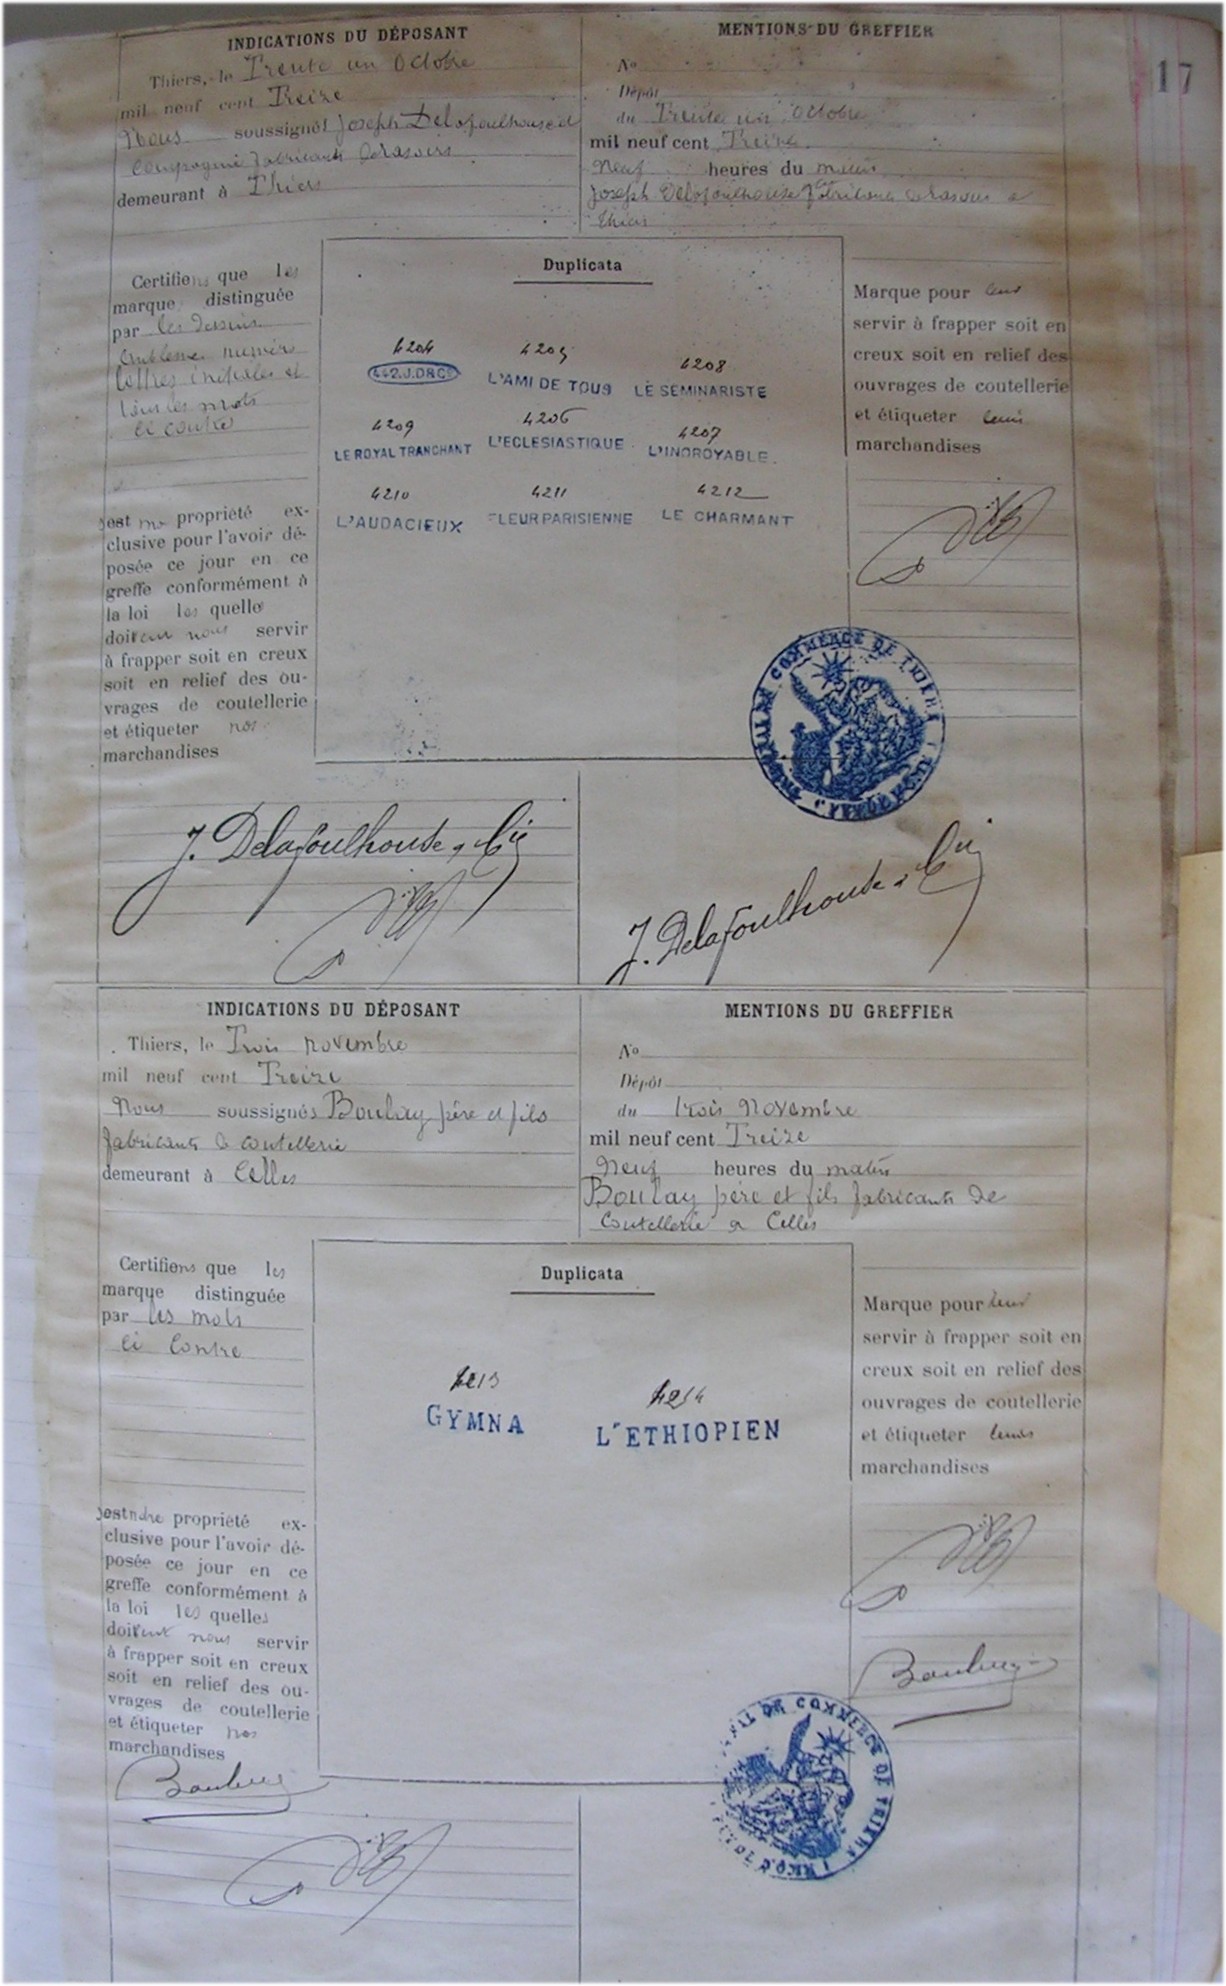 17
INDICATIONS DU DÉPOSANT
Thiers, le Trente un Octobre
mil neuf cent Treize
Nous soussignés Joseph Delafoulhouse et
Compagnie fabricants de rasoirs
demeurant à Thiers
MENTIONS DU GREFFIER
No
Dépôt
du Trente un Octobre
mil neuf cent Treize
Neuf heures du matin
Joseph Delafoulhouse fabricants de rasoirs a
Thiers
Certifions que les
marque distinguée
par les dessins
embleme numéro
lettres initiales et
tous les mots
ci contre
est propriété ex-
clusive pour l'avoir dé-
posée ce jour en ce
greffe conformément à
la loi les quelle
doivent nous servir
à frapper soit en creux
soit en relief des ou-
vrages de coutellerie
et étiqueter nos
marchandises
Duplicata
4204 4205 4208
442.J.DRCie L'AMI DE TOUS LE SEMINARISTE
4209 4206 4207
LE ROYAL TRANCHANT L'ECLESIASTIQUE L'INCROYABLE
4210 4211 4212
L'AUDACIEUX FLEUR PARISIENNE LE CHARMANT
Marque pour leur
servir à frapper soit en
creux soit en relief des
ouvrages de coutellerie
et étiqueter leurs
marchandises
TRIBUNAL DE COMMERCE DE THIERS
J. Delafoulhouse & Cie
J. Delafoulhouse & Cie
INDICATIONS DU DÉPOSANT
Thiers, le Trois novembre
mil neuf cent Treize
Nous soussignés Boulay père et fils
fabricants de coutellerie
demeurant à Celles
MENTIONS DU GREFFIER
No
Dépôt
du trois Novembre
mil neuf cent Treize
Neuf heures du matin
Boulay père et fils fabricants de
Coutellerie a Celles
Certifions que les
marque distinguée
par les mots
ci contre
est notre propriété ex-
clusive pour l'avoir dé-
posée ce jour en ce
greffe conformément à
la loi les quelles
doivent nous servir
à frapper soit en creux
soit en relief des ou-
vrages de coutellerie
et étiqueter nos
marchandises
Duplicata
4213 4214
GYMNA L'ETHIOPIEN
Marque pour leur
servir à frapper soit en
creux soit en relief des
ouvrages de coutellerie
et étiqueter leurs
marchandises
DE COMMERCE DE THIERS